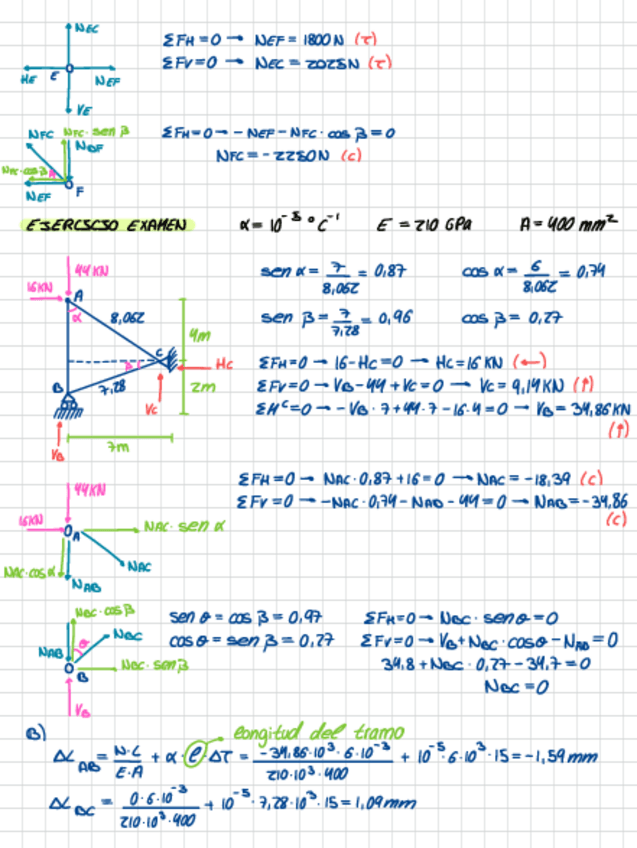 NEC
ΣFH=0 → NEF = 1800N (T)
HE E NEF
ΣFV=0 → NEC = 2025N (T)
VE
NFC NFC· sen β
NBF
ΣFH=0 → - NEF - NFC· cos β = 0
NFC·cosβ
F
NEF
NFC = -2250N (c)
EJERCICIO EXAMEN α = 10⁻⁵ °C⁻¹ E = 210 GPa A = 400 mm²
44KN
16KN
A
α
8,062
sen α = 7/8,062 = 0,87 cos α = 6/8,062 = 0,74
sen β = 7/7,28 = 0,96 cos β = 0,27
4m
C
β
HC
2m
B
7,28
VC
7m
VB
ΣFH=0 → 16-HC=0 → HC=16 KN (←)
ΣFV=0 → VB-44+VC=0 → VC= 9,14KN (↑)
ΣMᶜ=0 → -VB · 7+44·7-16·4=0 → VB= 34,86KN
(↑)
44KN
16KN
A
NAC· sen α
NAC·cosα
NAC
NAB
ΣFH=0 → NAC·0,87+16=0 → NAC= -18,39 (c)
ΣFV=0 → -NAC·0,74-NAB-44=0 → NAB=-34,86
(c)
NBC·cosβ
NBC
NAB
B
NBC· senβ
VB
sen θ = cos β = 0,97 ΣFH=0 → NBC· senθ=0
cosθ = sen β = 0,27 ΣFV=0 → VB+NBC·cosθ-NAB=0
34,8+NBC·0,27-34,7=0
NBC=0
B) longitud del tramo
ΔL AB = N·L/E·A + α·l·ΔT = -34,86·10³·6·10⁻³/210·10³·400 + 10⁻⁵·6·10³·15=-1,59mm
ΔL BC = 0·6·10⁻³/210·10³·400 + 10⁻⁵·7,28·10³·15=1,09mm